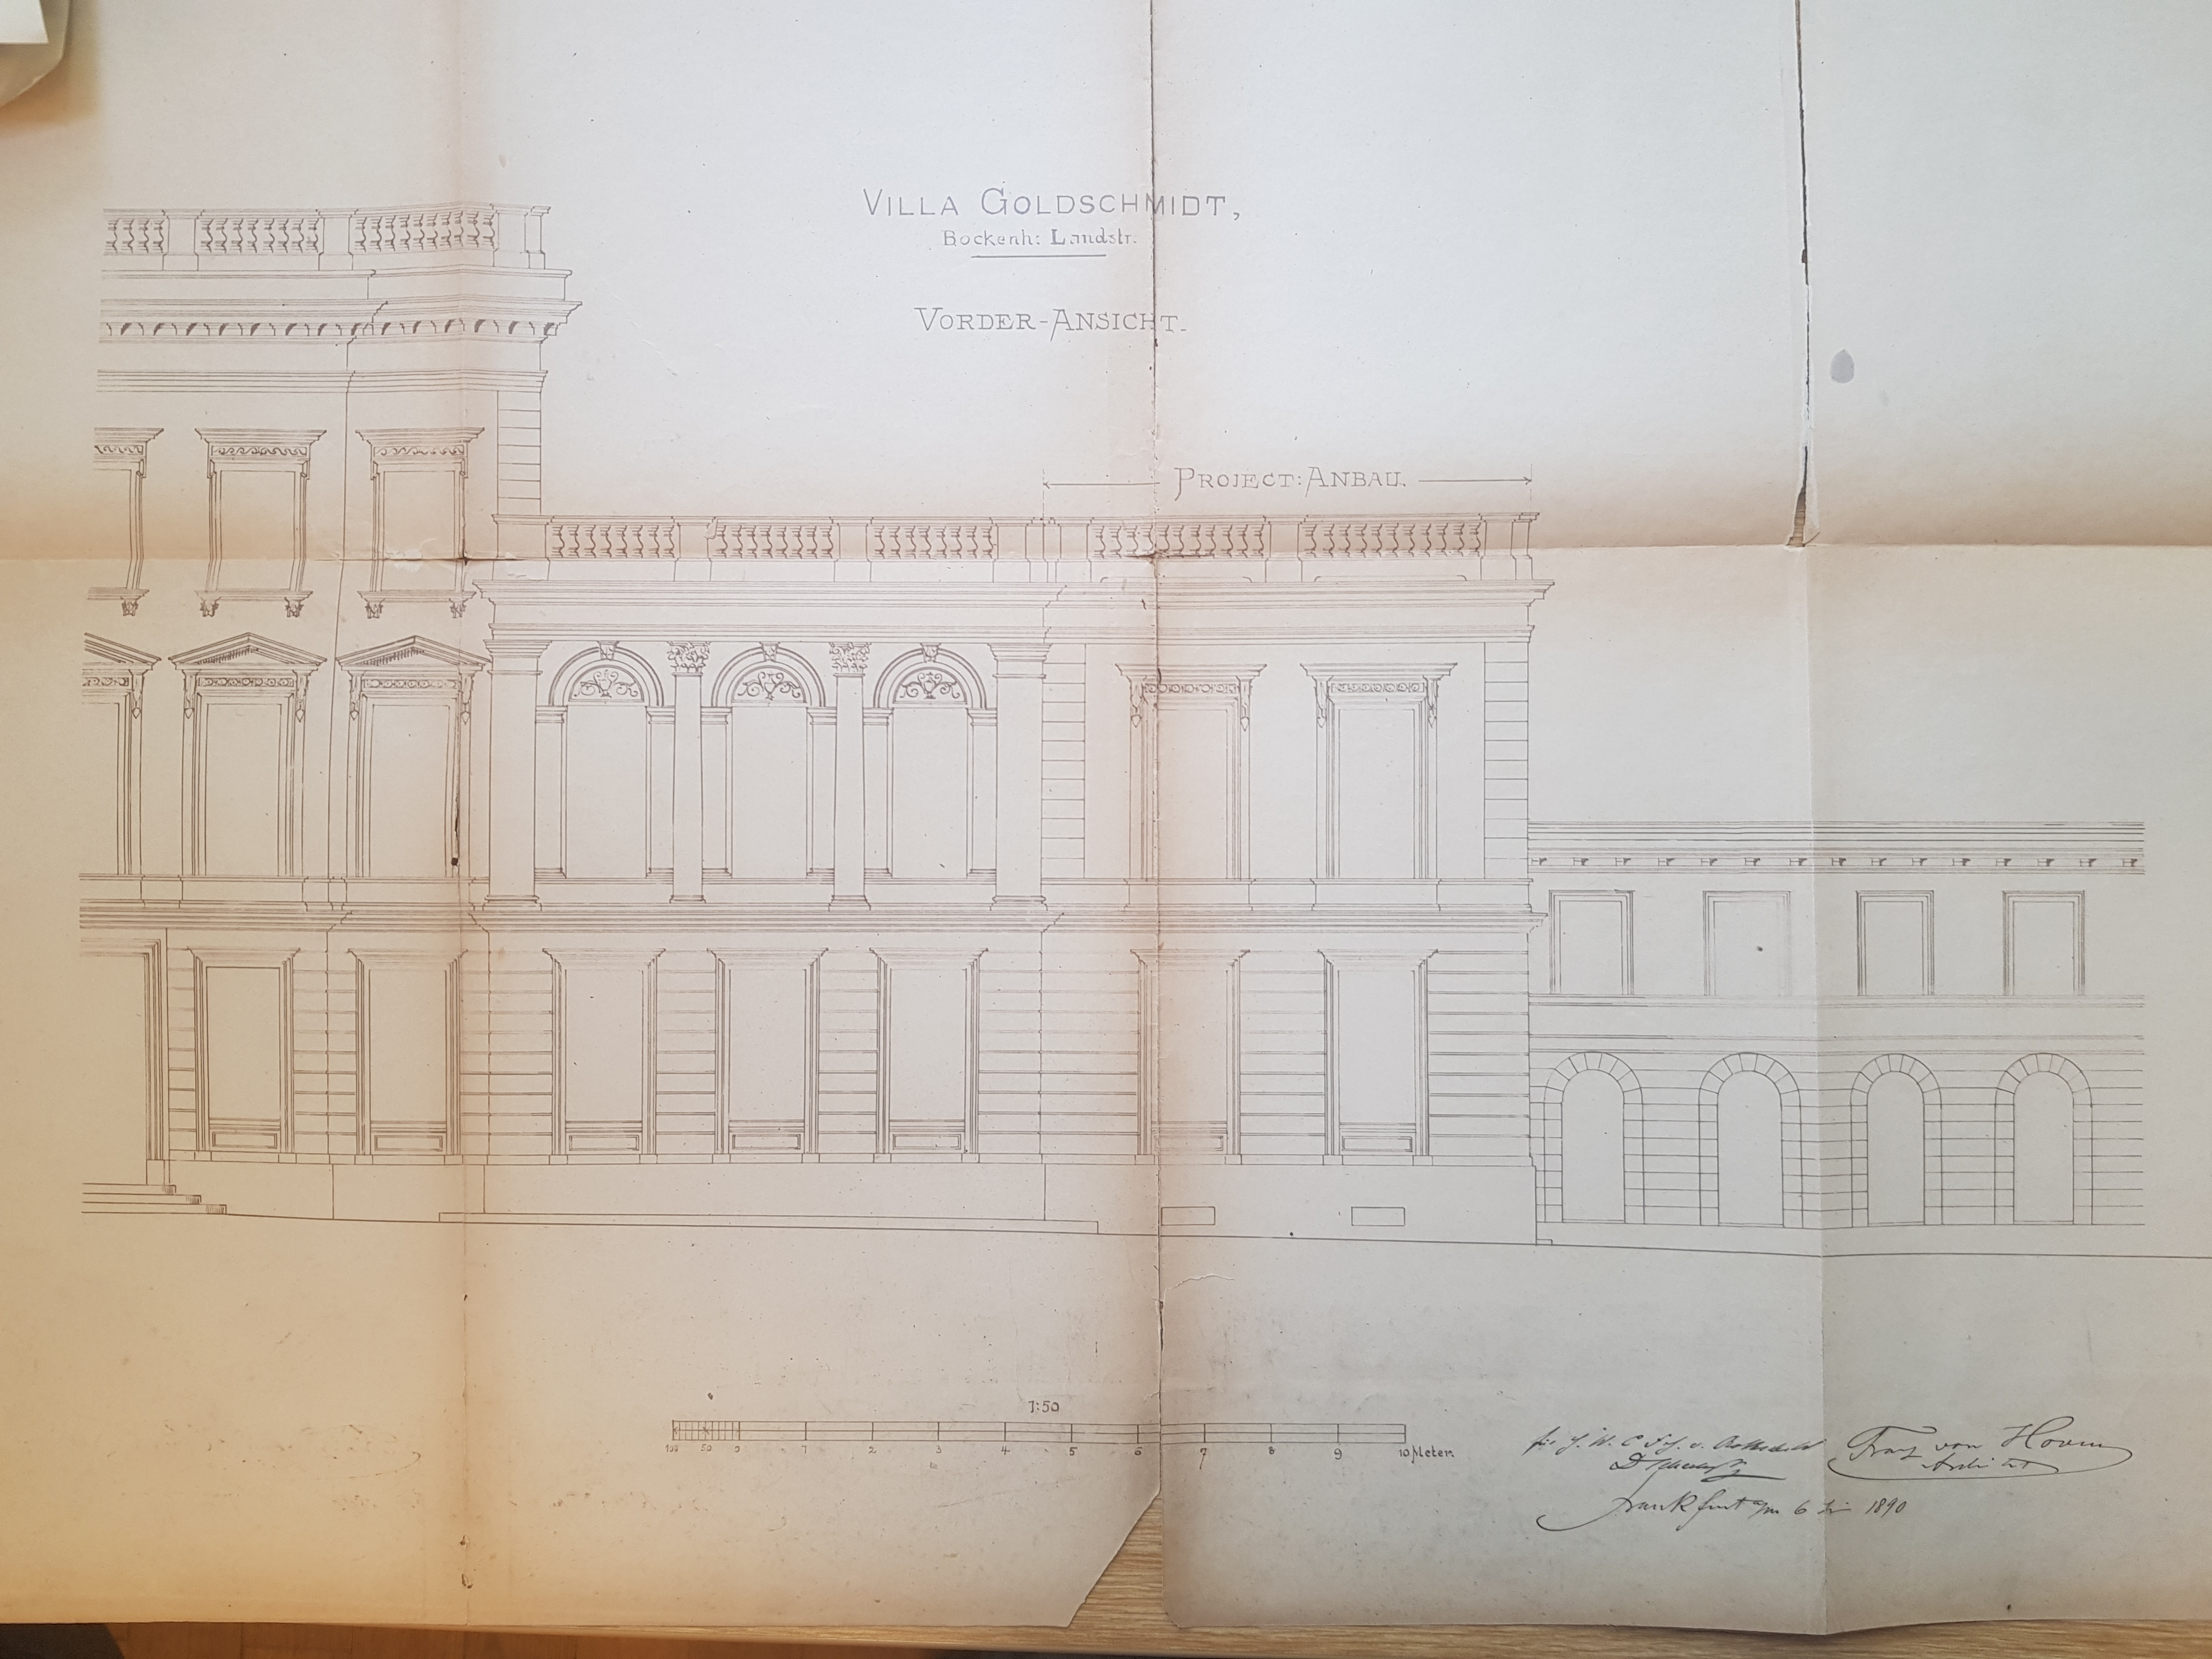 VILLA GOLDSCHMIDT,
Bockenh: Landstr.
VORDER-ANSICHT.
PROJECT: ANBAU.
1:50
100 50 0 1 2 3 4 5 6 7 8 9 10 Meter.
Franz von Hoven
Architect
Frankfurt a/m 6 1890